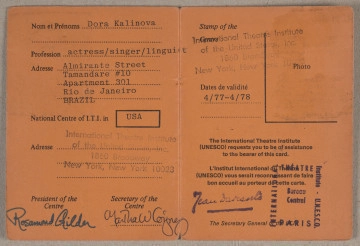 Nom et Prénoms Dora Kalinova
Profession actress/singer/linguist
Adresse Almirante Street
Tamandare #10
Apartment 301
Rio de Janeiro
BRAZIL
National Centre of I.T.I. in USA
International Theatre Institute
of the United States, Inc.
1860 Broadway
New York, New York 10023
President of the Centre
Secretary of the Centre
Rosamond Gilder
Martha W Coigney
Stamp of the
Centre
International Theatre Institute
of the United States, Inc.
1860 Broadway
New York, New York
Photo
Dates de validité
4/77-4/78
The International Theatre Institute
(UNESCO) requests you to be of assistance
to the bearer of this card.
L'Institut International
(UNESCO) vous serait reconnaissant de faire
bon accueil au porteur de cette carte.
Jean Darcante
The Secretary General
INTERNATIONAL THEATRE Institute - UNESCO
Bureau
Central
PARIS